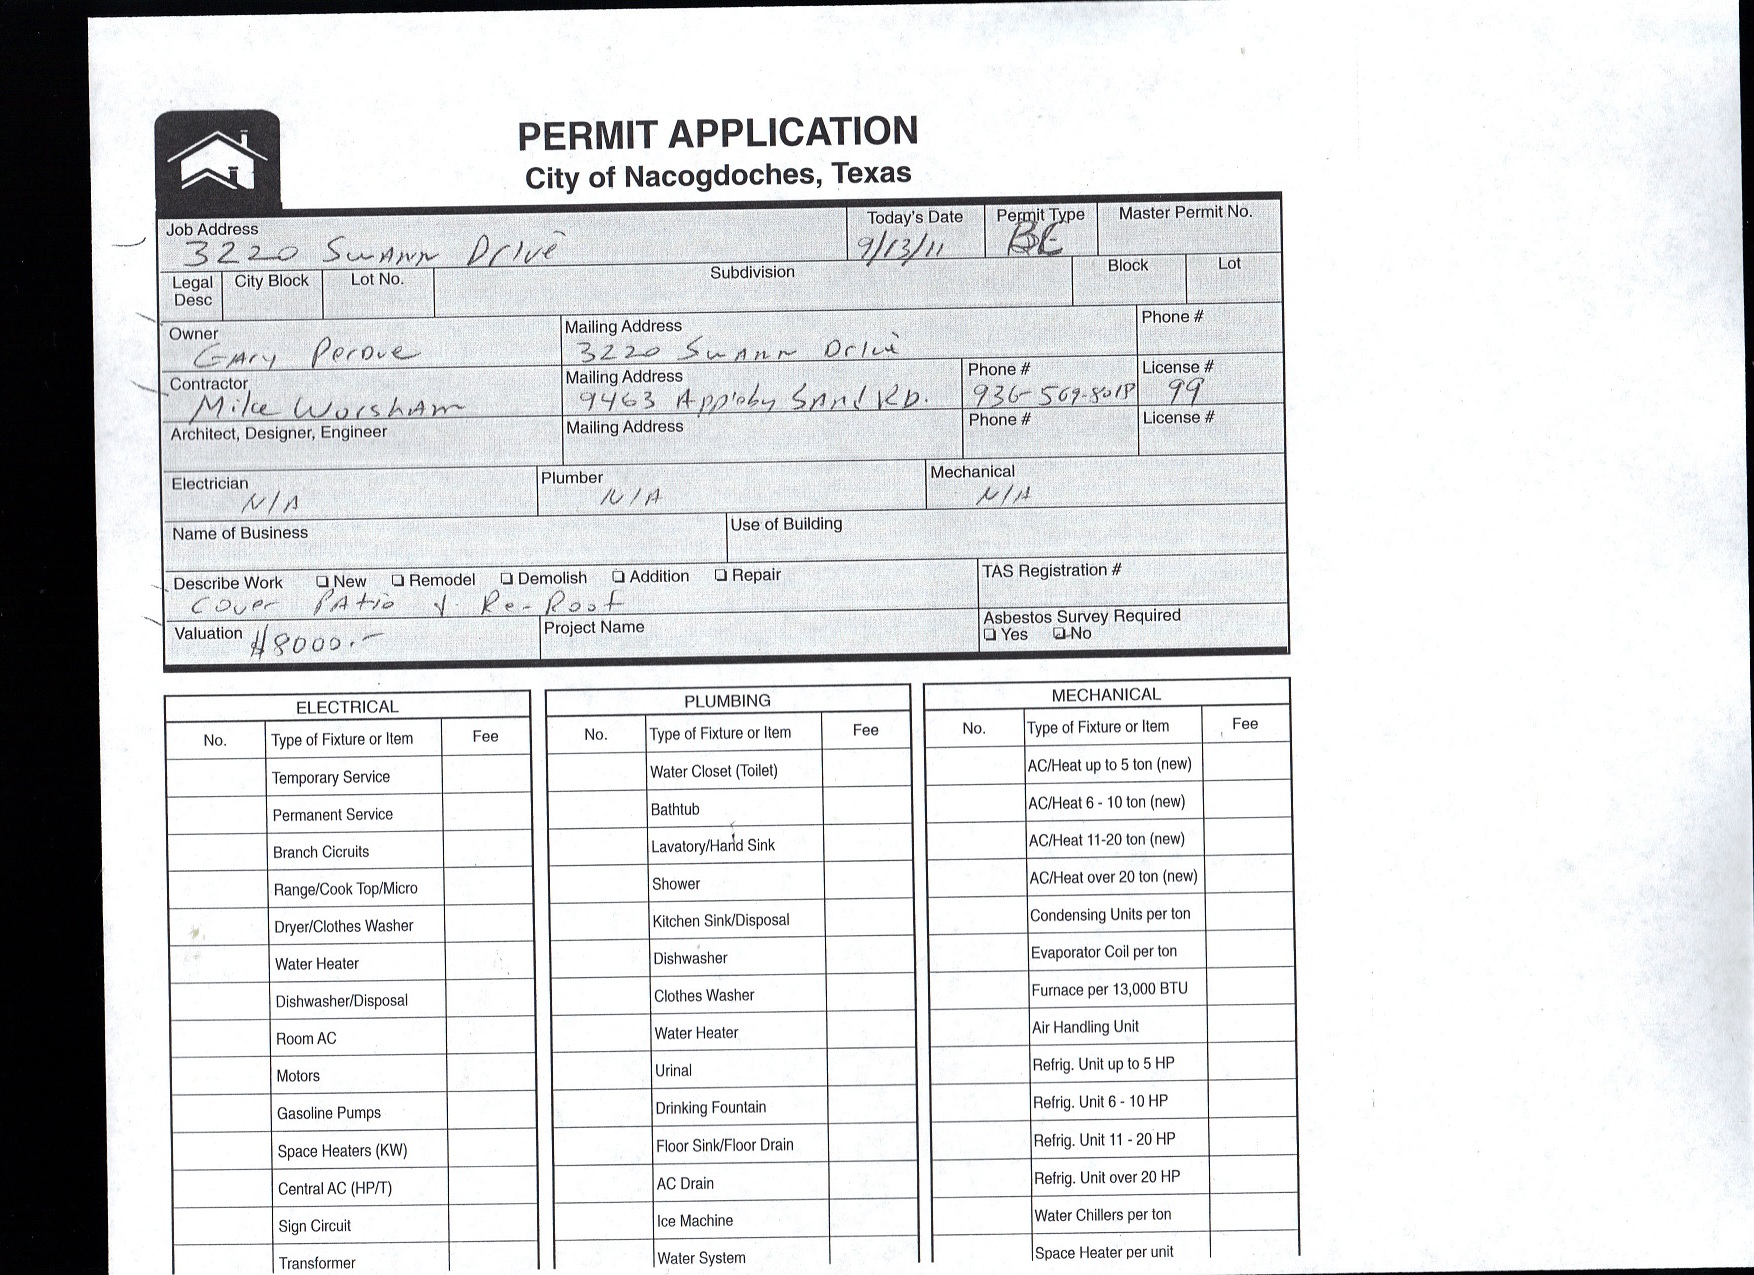 PERMIT APPLICATION
City of Nacogdoches, Texas
Job Address Today's Date Permit Type Master Permit No.
3220 Swann Drive 9/13/11 BE
Legal Desc City Block Lot No. Subdivision Block Lot
Owner Mailing Address Phone #
Gary Perdue 3220 Swann Drive
Contractor Mailing Address Phone # License #
Mike Worsham 9463 Appleby Sand Rd. 936-569-8018 99
Architect, Designer, Engineer Mailing Address Phone # License #
Electrician Plumber Mechanical
N/A N/A N/A
Name of Business Use of Building
Describe Work New Remodel Demolish Addition Repair TAS Registration #
Cover Patio & Re-Roof
Valuation $8000.- Project Name Asbestos Survey Required
Yes No
ELECTRICAL PLUMBING MECHANICAL
No. Type of Fixture or Item Fee No. Type of Fixture or Item Fee No. Type of Fixture or Item Fee
Temporary Service Water Closet (Toilet) AC/Heat up to 5 ton (new)
Permanent Service Bathtub AC/Heat 6 - 10 ton (new)
Branch Cicruits Lavatory/Hand Sink AC/Heat 11-20 ton (new)
Range/Cook Top/Micro Shower AC/Heat over 20 ton (new)
Dryer/Clothes Washer Kitchen Sink/Disposal Condensing Units per ton
Water Heater Dishwasher Evaporator Coil per ton
Dishwasher/Disposal Clothes Washer Furnace per 13,000 BTU
Room AC Water Heater Air Handling Unit
Motors Urinal Refrig. Unit up to 5 HP
Gasoline Pumps Drinking Fountain Refrig. Unit 6 - 10 HP
Space Heaters (KW) Floor Sink/Floor Drain Refrig. Unit 11 - 20 HP
Central AC (HP/T) AC Drain Refrig. Unit over 20 HP
Sign Circuit Ice Machine Water Chillers per ton
Transformer Water System Space Heater per unit